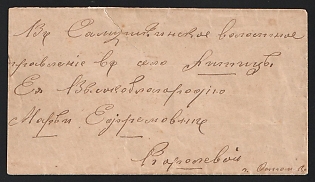 Въ Самушкинское волостное
правление въ село Яптицы
Ея Высокоблагородию
Марьи Ефремовне
Королевой